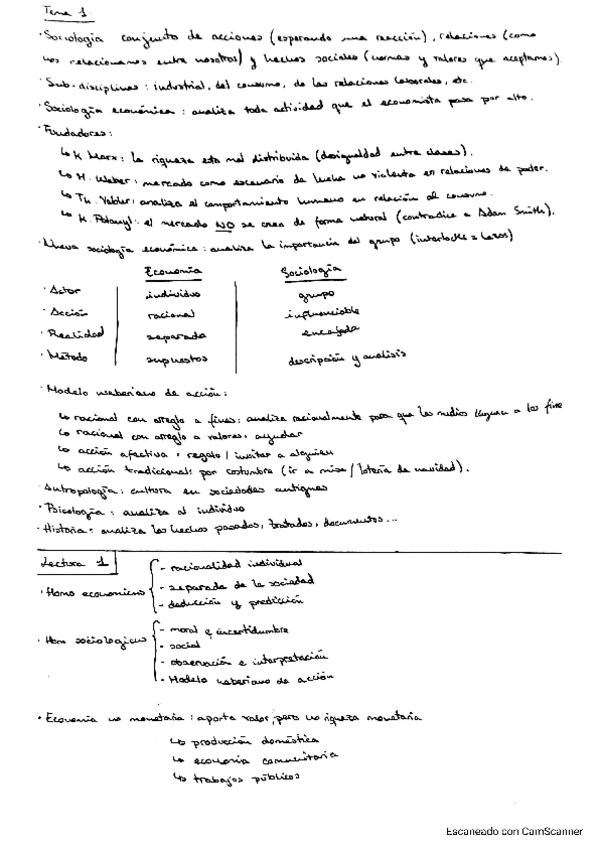 Tema 1
· Sociología conjunto de acciones (esperando una reacción), relaciones (como
nos relacionamos entre nosotros) y hechos sociales (normas y valores que aceptamos).
· Sub-disciplinas: industrial, del consumo, de las relaciones laborales, etc.
· Sociología económica: analiza toda actividad que el economista pasa por alto.
· Fundadores:
↳ K. Marx: la riqueza esta mal distribuida (desigualdad entre clases).
↳ M. Weber: mercado como escenario de lucha no violenta en relaciones de poder.
↳ Th. Vebler: analiza el comportamiento humano en relación al consumo.
↳ K. Polanyi: el mercado NO se crea de forma natural (contradice a Adam Smith).
· Nueva sociología económica: analiza la importancia del grupo (interlocks = lazos)
Economía Sociología
· Actor individuo grupo
· Acción racional influenciable
· Realidad separada encajada
· Método supuestos descripción y análisis
· Modelo weberiano de acción:
↳ racional con arreglo a fines: analiza racionalmente para que los medios lleguen a los fines
↳ racional con arreglo a valores: ayudar
↳ acción afectiva: regalo / invitar a alguien
↳ acción tradicional: por costumbre (ir a misa / lotería de navidad).
· Antropología: cultura en sociedades antiguas
· Psicología: analiza al individuo
· Historia: analiza los hechos pasados, tratados, documentos...
Lectura 1
· Homo economicus
- racionalidad individual
- separada de la sociedad
- deducción y predicción
· Hom sociologicus
- moral e incertidumbre
- social
- observación e interpretación
- Modelo weberiano de acción
· Economía no monetaria: aporta valor, pero no riqueza monetaria
↳ producción doméstica
↳ economía comunitaria
↳ trabajos públicos
Escaneado con CamScanner